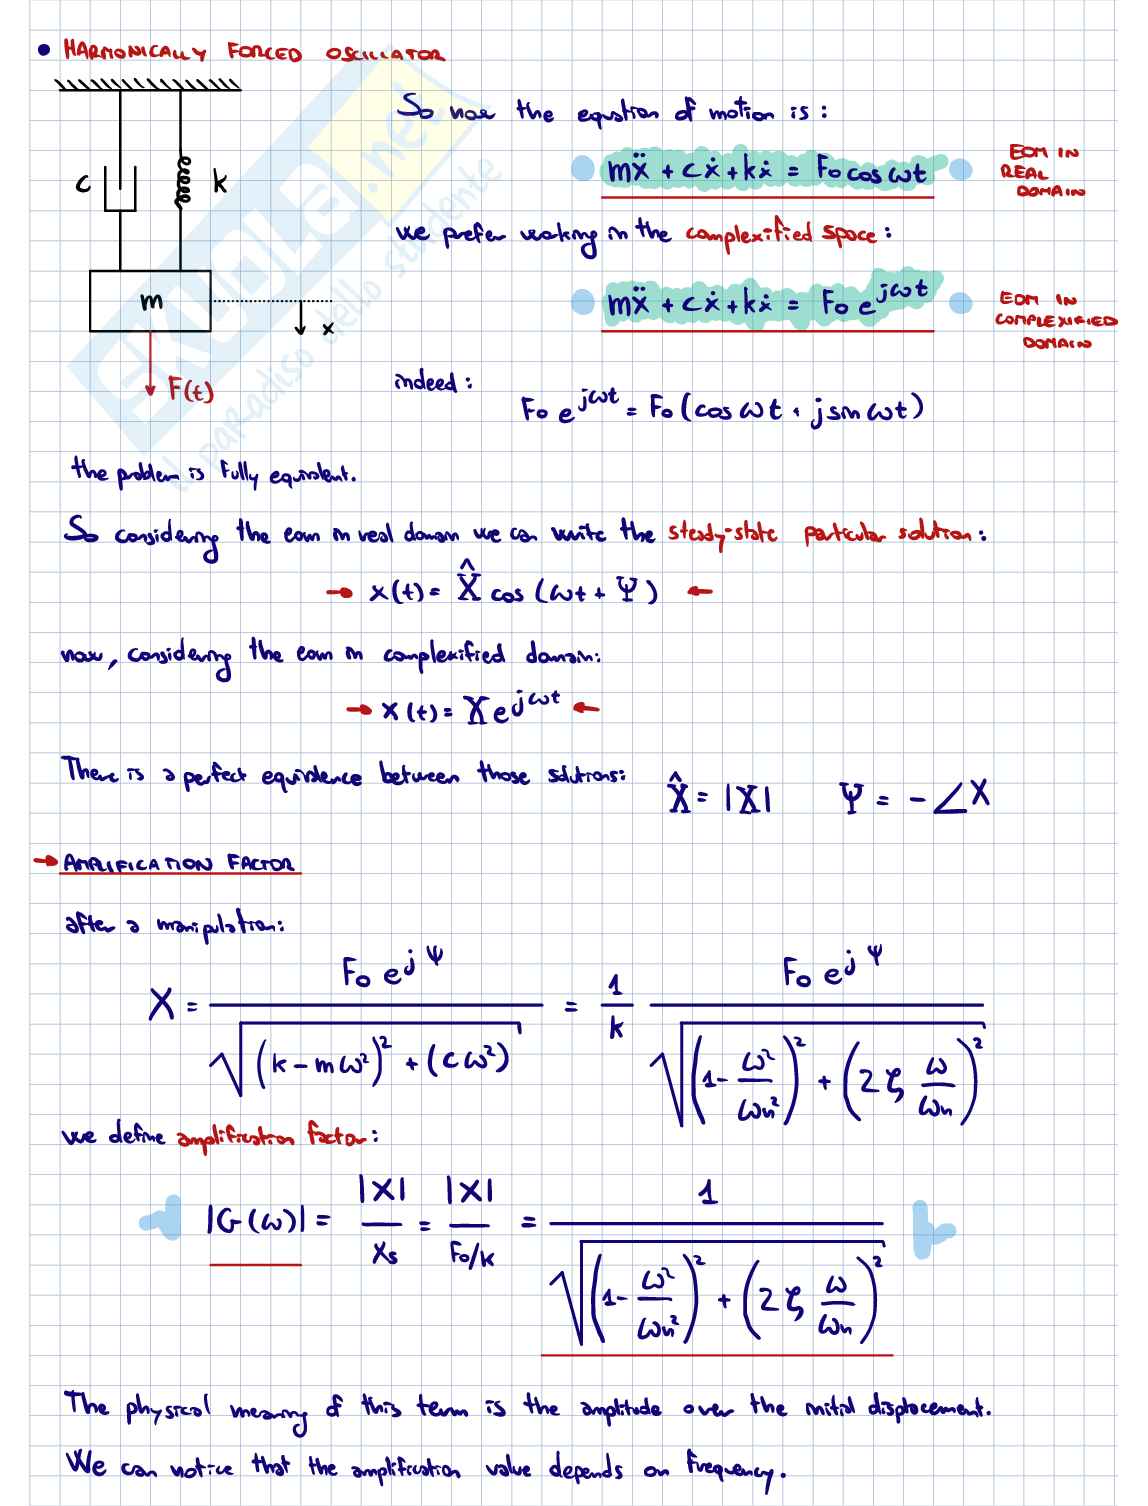 • HARMONICALLY FORCED OSCILLATOR
So now the equation of motion is:
c k
mẍ + cẋ + kẋ = F₀ cos ωt
EOM IN
REAL
DOMAIN
we prefer working in the complexified space:
m
x
mẍ + cẋ + kẋ = F₀ e^{jωt}
EOM IN
COMPLEXIFIED
DOMAIN
F(t)
indeed:
F₀ e^{jωt} = F₀ (cos ωt + j sin ωt)
the problem is fully equivalent.
So considering the eom in real domain we can write the steady-state particular solution:
→ x(t) = X̂ cos (ωt + Ψ) ←
now, considering the eom in complexified domain:
→ x(t) = X e^{jωt} ←
There is a perfect equivalence between those solutions: X̂ = |X| Ψ = -∠X
→ AMPLIFICATION FACTOR
after a manipulation:
X = F₀ e^{jΨ} / √((k - mω²)² + (cω²)) = 1/k F₀ e^{jΨ} / √((1 - ω²/ωn²)² + (2ζ ω/ωn)²)
we define amplification factor:
|G(ω)| = |X|/Xs = |X|/(F₀/k) = 1 / √((1 - ω²/ωn²)² + (2ζ ω/ωn)²)
The physical meaning of this term is the amplitude over the initial displacement.
We can notice that the amplification value depends on frequency.
SKUOLA.net
il paradiso dello studente